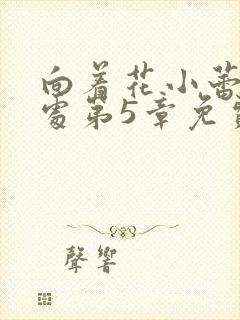 向着花小蕾
处第5章免费
聲響